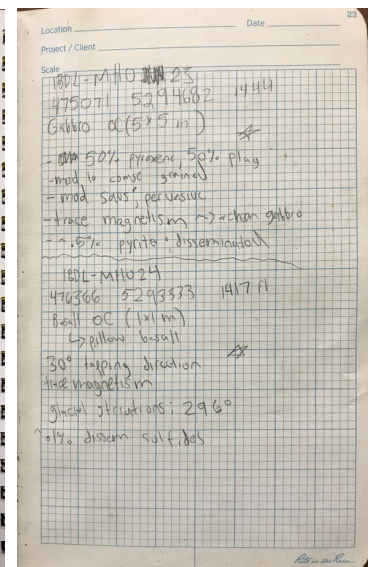 23
Location Date
Project / Client
Scale
18DL-MH023
475071 5294682 1444
Gabbro OC (5x5 m)
- 50% pyroxene, 50% plag
- med to coarse grained
- mod saus, pervasive
- trace magnetism ~> archean gabbro
- ~.5% pyrite, disseminated
18DL-MH024
476366 5293333 1417 ft
Basalt OC (1x1m)
↳ pillow basalt
30° topping direction
trace magnetism
glacial striations: 296°
~.1% dissem sulfides
Rite in the Rain